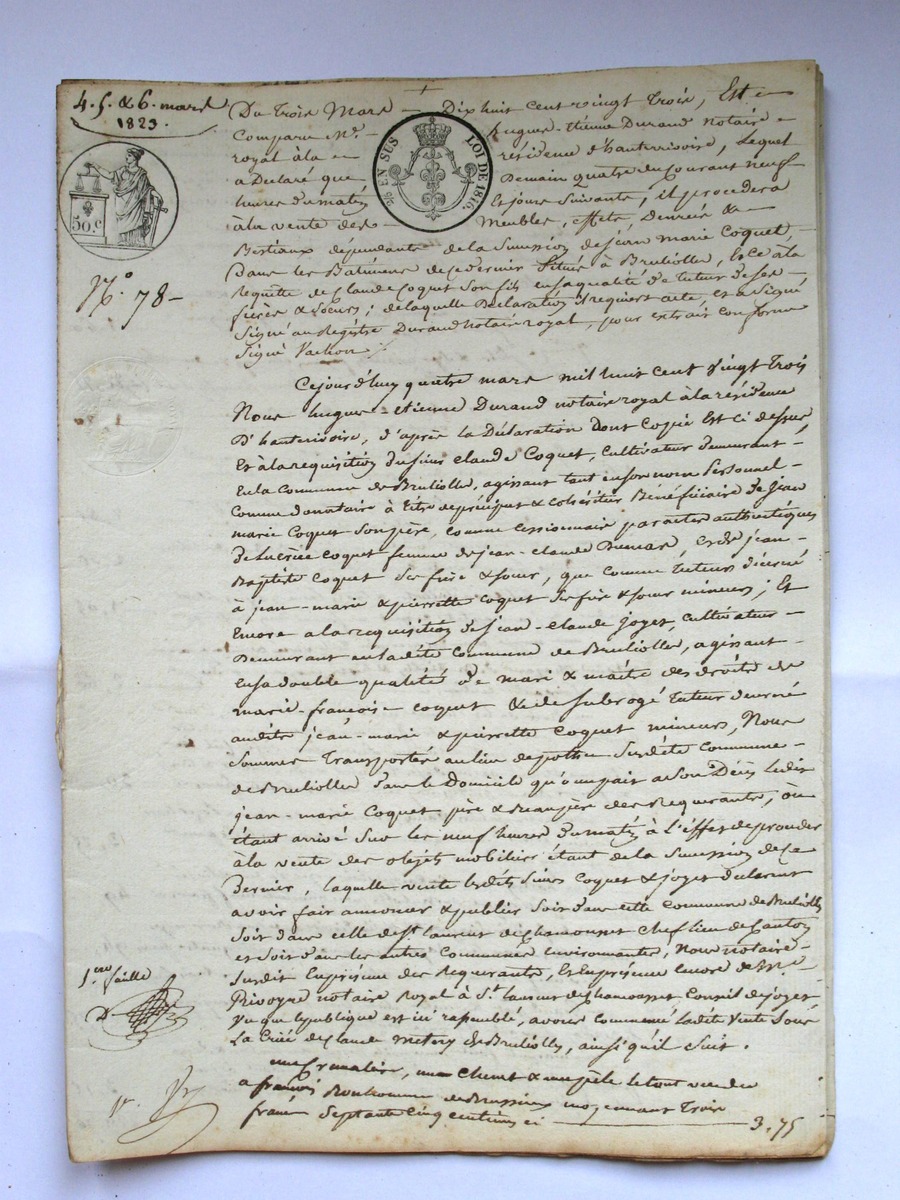 4. 5. & 6. mars
1823.
Du Trois Mars – Dix huit cent vingt Trois, Est
Comparu Me. hugue-Etienne Durand notaire
royal à la résidence d'hauterivoire, Lequel
a Déclaré que Demain quatre du Courant neuf
heures du matin & jours suivants, il procedera
à la vente des Meubles, effets, denrées &
Bestiaux dépendants de la Succession de jean marie Coquet,
Dans les Batiments de ce dernier Situés à Brulliolles, & ce à la
requête de Claude Coquet Son fils en sa qualité de tuteur de ses
frères & Soeurs; de laquelle Déclaration a requis acte, et a Signé
Signé au Registre Durand notaire royal, pour extrait conforme
Signé Vachon
EN SUS
LOI DE 1816.
50.c
No. 78
Cejourd'huy quatre mars mil huit cent vingt Trois
Nous hugue-etienne Durand notaire royal à la résidence
D'hauterivoire, d'après la Déclaration Dont Copie Est ci dessus
Et à la requisition du Sieur Claude Coquet, Cultivateur demeurant
En la Commune de Brulliolles, agissant tant en son nom personnel
Comme donataire à titre de préciput & cohéritier Bénéficiaire de Jean
marie Coquet Son père, comme cessionnaire par actes authentiques
De Coquet femme de jean-Claude et de jean-
Baptiste Coquet Ses frère & soeur, que comme tuteur décerné
à jean-marie & pierrette Coquet Ses frère & soeur mineurs; Et
Encore a la requisition de jean-Claude joyet, Cultivateur
Demeurant en ladite Commune de Brulliolles, agissant
En sa double qualité de mari & maître des droits de
marie-françoise Coquet & de Subrogé tuteur décerné
audits jean-marie & pierrette Coquet mineurs, Nous
Sommes Transportés au lieu de Susdite Commune
de Brulliolles Dans le Domicile qu'occupait a Son Décès ledit
jean-marie Coquet père & beaupère des Requerants, où
étant arrivé Sur les neuf heures du matin à L'effet de proceder
à la vente des objets mobiliers étant de la Succession de ce
Dernier, laquelle vente lesdits Sieurs Coquet & joyet déclarent
avoir fait annoncer & publier Soit dans cette commune de Brulliolles
Soit dans celle de St laurent de Chamousset Chef lieu de Canton
et Soit dans les autres Communes environnantes, Nous notaire
Susdit En présence des Requerants, Et En présence encore de
Rivoyre notaire Royal à St. laurent de Chamousset Conseil de joyet,
Vu que le publique est ici rassemblé, avons commencé ladite Vente Sous
La Criée de Claude metery de Brulliolles, ainsi qu'il Suit.
1ere faille
D
une Cremaliere, un Chenet & une pele le tout vendu
a françois de Brussieux moyennant Trois
francs Septante Cinq centimes ci 3, 75